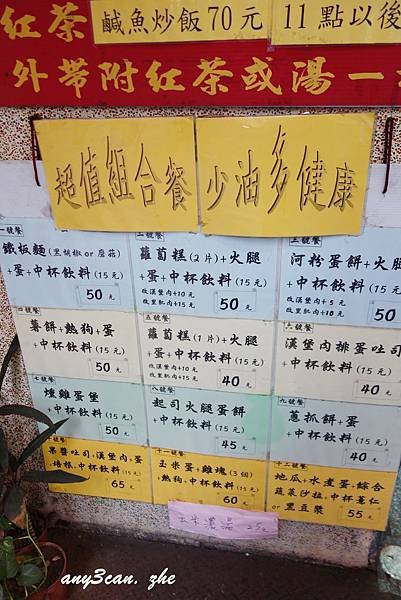 紅茶
鹹魚炒飯70元
11點以後
外帶附紅茶或湯一
超值組合餐
少油多健康
一號餐
鐵板麵(黑胡椒or蘑菇)
+蛋+中杯飲料(15元)
50元
二號餐
蘿蔔糕(2片)+火腿
+蛋+中杯飲料(15元)
改漢堡肉+10元
改里肌肉+15元
50元
三號餐
河粉蛋餅+火腿
+中杯飲料(15元)
改漢堡肉+5元
改里肌肉+10元
50元
四號餐
薯餅+熱狗+蛋
+中杯飲料(15元)
50元
五號餐
蘿蔔糕(1片)+火腿
+蛋+中杯飲料(15元)
改漢堡肉+10元
改里肌肉+15元
40元
六號餐
漢堡肉排蛋吐司
+中杯飲料(15元)
40元
七號餐
燻雞蛋堡
+中杯飲料(15元)
50元
八號餐
起司火腿蛋餅
+中杯飲料(15元)
45元
九號餐
蔥抓餅+蛋
+中杯飲料(15元)
40元
十號餐
果醬吐司+漢堡肉+蛋
+培根+中杯飲料(15元)
65元
十一號餐
玉米蛋+雞塊(3個)
+熱狗+中杯飲料(15元)
60元
十二號餐
地瓜+水煮蛋+綜合
蔬菜沙拉+中杯薏仁
or黑豆漿
55元
玉米濃湯 25元
any3can. zhe